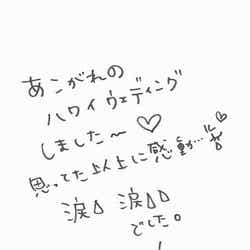 あこがれの
ハワイウェディング
しました〜♡
思ってた以上に感動…♡
涙💧 涙💧💧
でした。